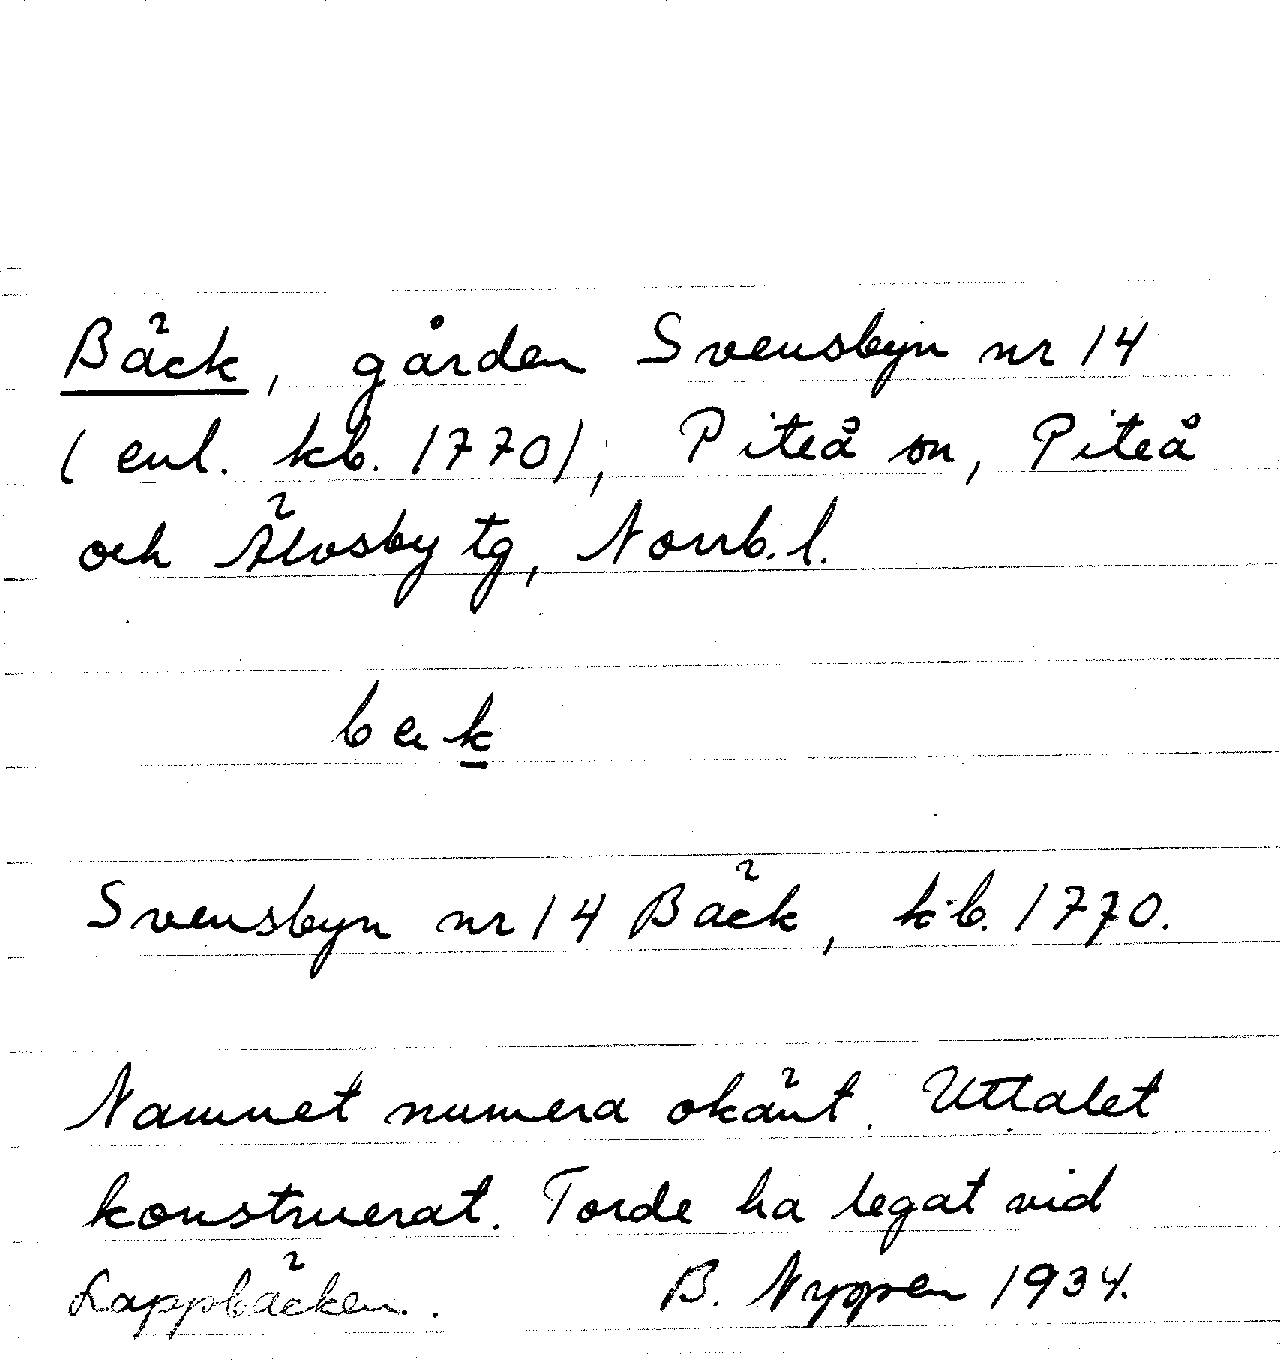 Bäck, gården Svensbyn nr 14
(enl. kb. 1770), Piteå sn, Piteå
och Älvsby tg, Norrb. l.
bäk
Svensbyn nr 14 Bäck, kb. 1770.
Namnet numera okänt. Uttalet
konstruerat. Torde ha legat vid
Lappbäcken. B. Nygren 1934.